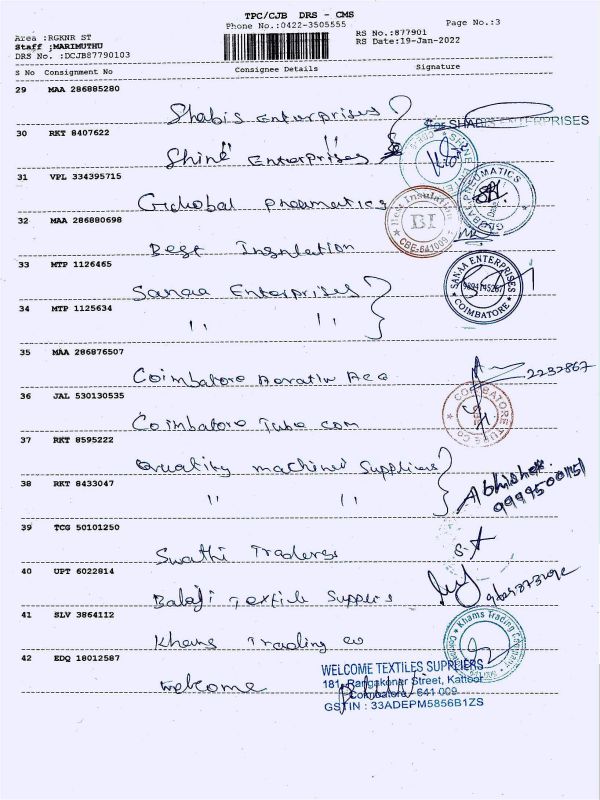 TPC/CJB DRS - CMS
Phone No.:0422-3505555
Page No.:3
Area :RGKNR ST
Staff :MARIMUTHU
DRS No. :DCJB87790103
RS No.:877901
RS Date:19-Jan-2022
S No Consignment No Consignee Details Signature
29 MAA 286885280
Shabis Enterprises
For SHABIS ENTERPRISES
30 RKT 8407622
Shine Enterprises
31 VPL 334395715
Global Pneumatics
GLOBAL PNEUMATICS
32 MAA 286880698
Best Insulation
Best Insulation
BI
CBE-641009
33 MTP 1126465
Sanaa Enterprises
SANAA ENTERPRISES
COIMBATORE
34 MTP 1125634
" "
35 MAA 286876507
Coimbatore
2232867
36 JAL 530130535
Coimbatore Tube com
COIMBATORE TUBE CO
37 RKT 8595222
Quality machined Suppliers
38 RKT 8433047
" "
Abhishek
39 TCG 50101250
Swathi Traders
40 UPT 6022814
Balaji Textile Suppliers
41 SLV 3864112
Khams Trading co
Khams Trading Company
42 EDQ 18012587
Welcome
WELCOME TEXTILES SUPPLIERS
181, Rangakonar Street, Kattoor
Coimbatore - 641 009
GSTIN : 33ADEPM5856B1ZS